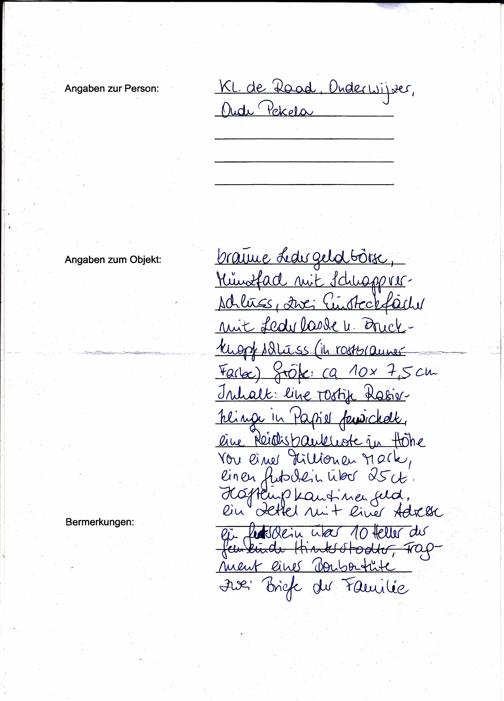 Angaben zur Person: Kl. de Raad, Onderwijzer,
Oude Pekela
Angaben zum Objekt: braune Ledergeldbörse,
Münzfad mit Schnappver-
schluss, zwei Einsteckfächer
mit Lederlasche u. Druck-
knopfschluss (in rostbrauner
Farbe) Größe: ca 10 x 7,5 cm
Inhalt: eine rostige Rasier-
klinge in Papier gewickelt,
eine Reichsbanknote in Höhe
von einer Millionen Mark,
einen Gutschein über 25 ct.
kantinengeld,
ein Zettel mit einer Adresse
Bermerkungen: ein Gutschein über 10 Heller der
Gemeinde Hinterstoder, Frag-
ment einer Bonbontüte
zwei Briefe der Familie